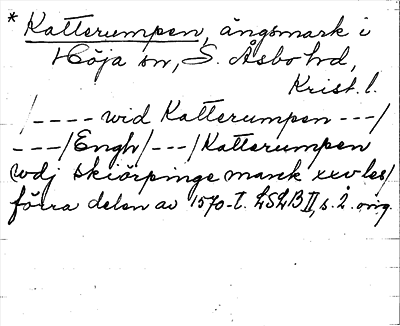 * Katterumpen, ängsmark i
Höja sn, S. Åsbo hd,
Krist. l.
/---- wid Katterumpen ---/
---/Engh/---/Katterumpen
wdj skiörpinge marck xxv les/
förra delen av 1570-t. LSLB II, s. 2. orig.